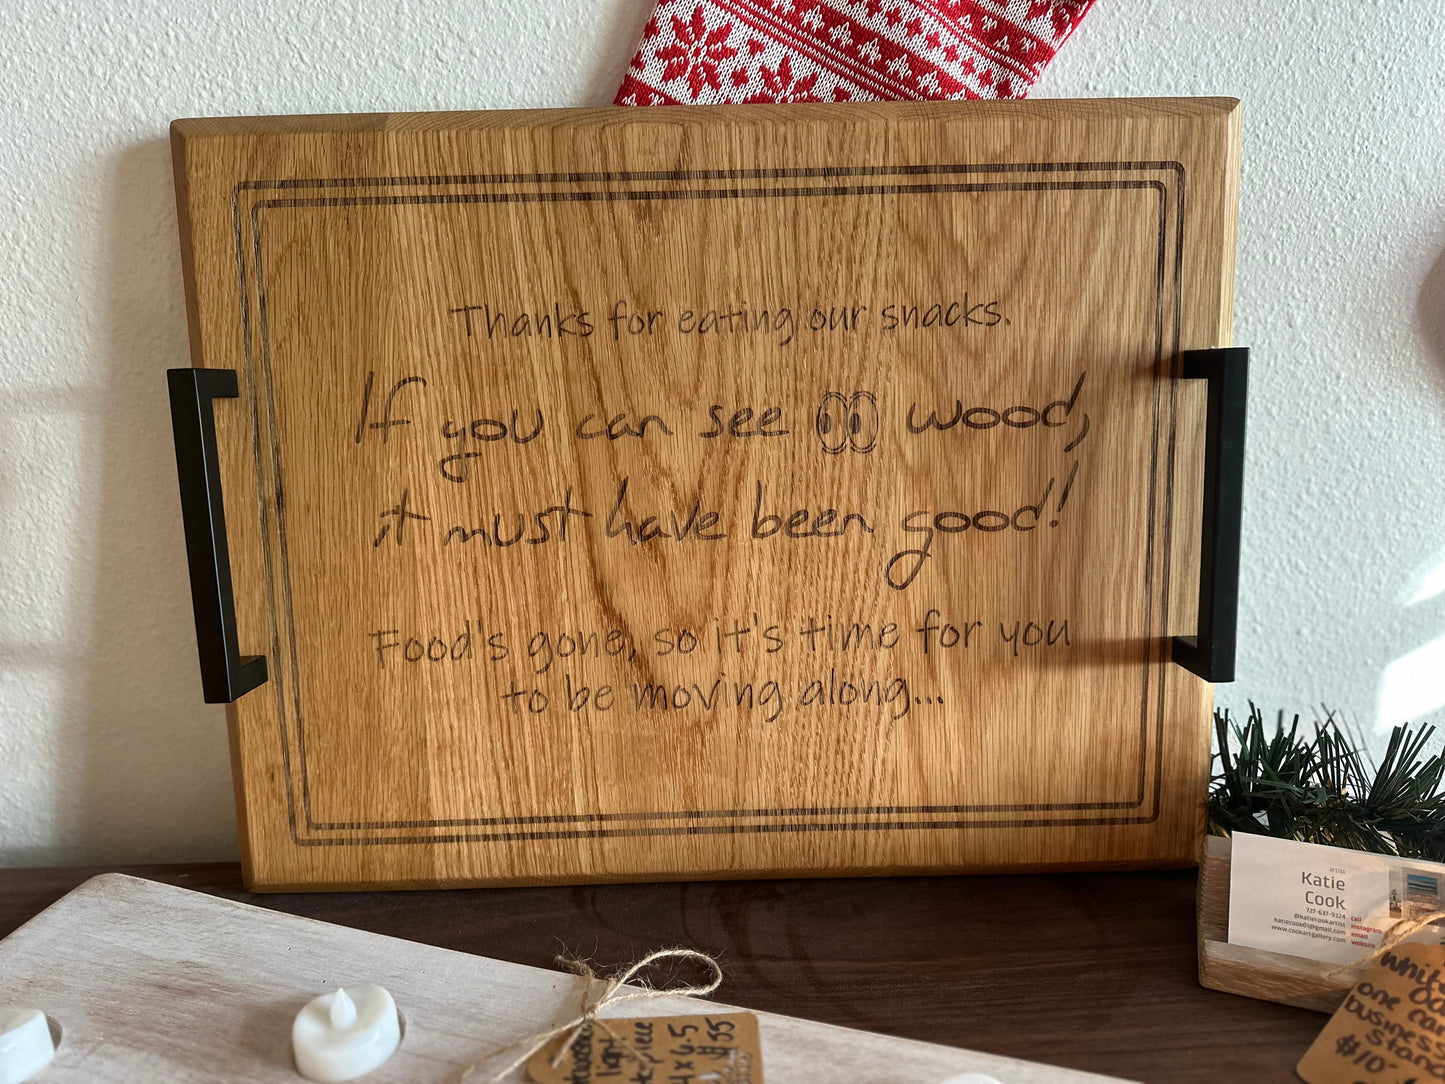 Thanks for eating our snacks.
If you can see 👀 wood,
it must have been good!
Food's gone, so it's time for you
to be moving along...
artist
Katie
Cook
727-637-9324 call
@katiecookartist instagram
katiecook01@gmail.com email
www.cookartgallery.com website
light
4 x 6.5
$35
one
business
stand
$10